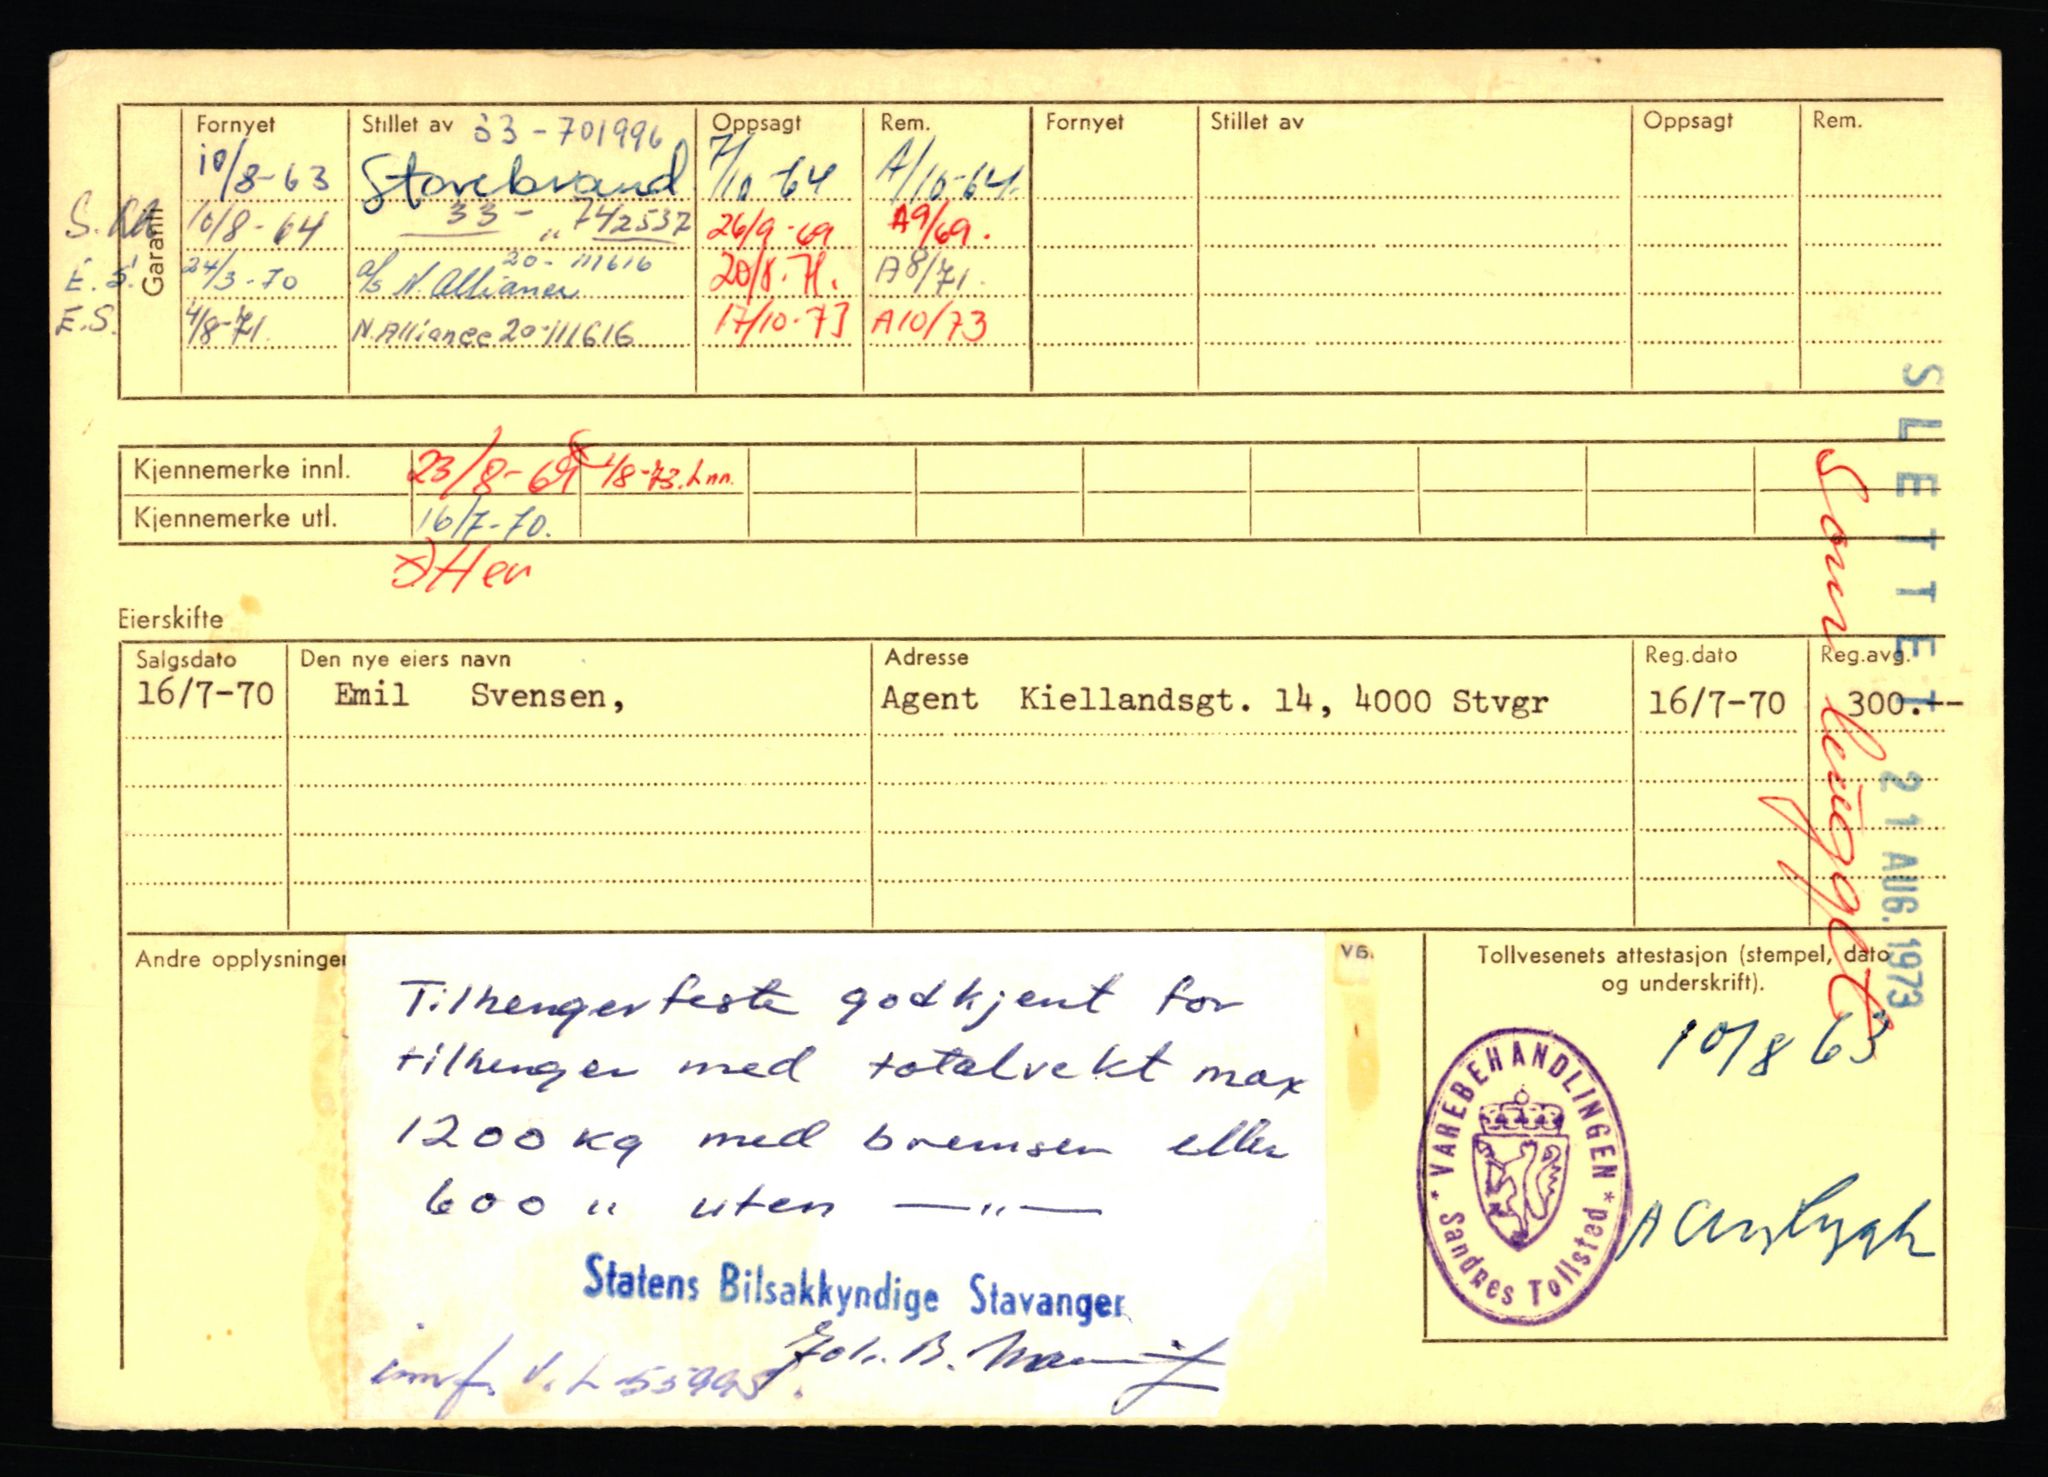 Garanti
Fornyet Stillet av Oppsagt Rem. Fornyet Stillet av Oppsagt Rem.
33-701996
10/8-63 Storebrand 7/10-64 A/10-64.
10/8-64 33- „ 742537 26/9-69 A9/69.
E.S. 24/3-70 a/s N. Alliance 20-111616 20/8-71. A8/71.
E.S. 4/8-71. N. Alliance 20-111616 17/10-73 A10/73
Kjennemerke innl. 23/8-69 1/8-73. Inn.
Kjennemerke utl. 16/7-70.
Eierskifte
Salgsdato Den nye eiers navn Adresse Reg.dato Reg.avg.
16/7-70 Emil Svensen, Agent Kiellandsgt. 14, 4000 Stvgr 16/7-70 300.--
SLETTET 21 AUG. 1973
Andre opplysninger
Tilhengerfeste godkjent for
tilhenger med totalvekt max
1200 kg med bremser eller
600 " uten —"—
Statens Bilsakkyndige Stavanger
Tollvesenets attestasjon (stempel, dato
og underskrift).
10/8 63
* VAREBEHANDLINGEN *
Sandnes Tollsted